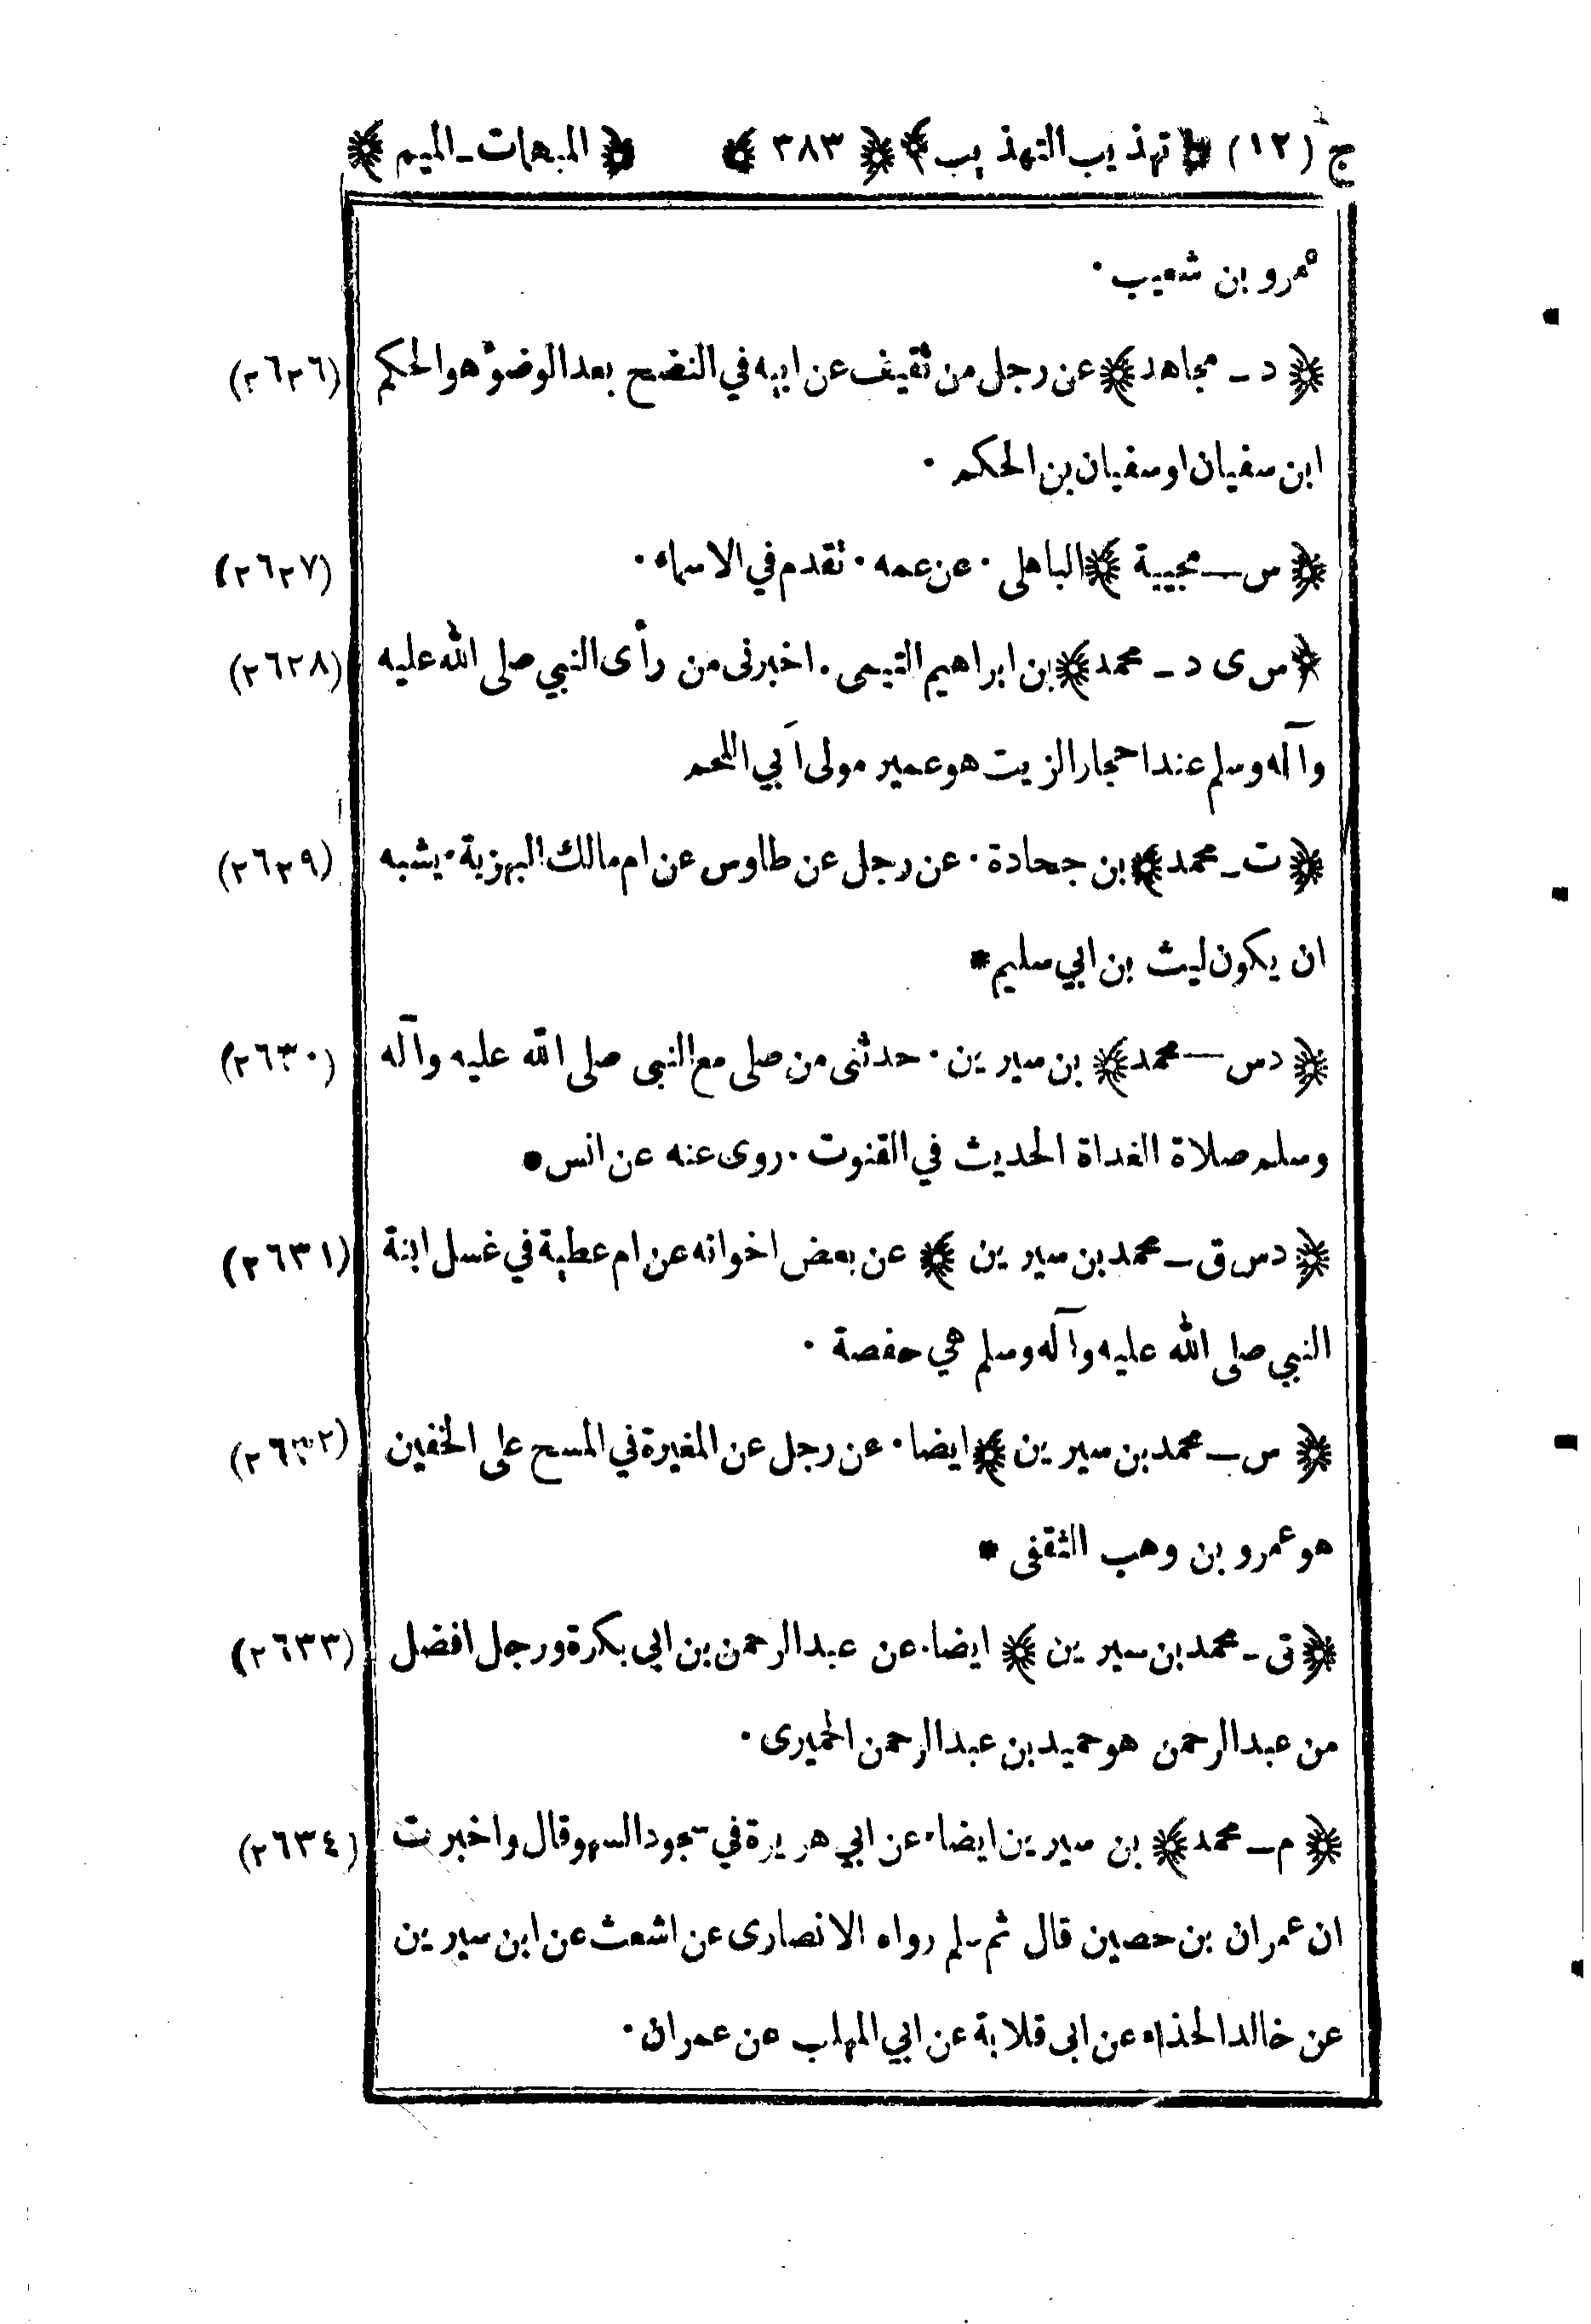 ج (١٢) ﴿تهذيب التهذيب﴾ ﴿٣٨٣﴾ ﴿المبهمات-الميم﴾
عمرو بن شعيب ٠
﴿د - مجاهد﴾ عن رجل من ثقيف عن ابيه في النضح بعد الوضوء هو الحكم (٢٦٢٦)
ابن سفيان او سفيان بن الحكم ٠
﴿س — مجيبة﴾ الباهلى ٠ عن عمه ٠ تقدم في الاسماء ٠ (٢٦٢٧)
﴿س ى د - محمد﴾ بن ابراهيم التيمى ٠ اخبرنى من رأى النبي صلى الله عليه (٢٦٢٨)
وآله وسلم عند احجار الزيت هو عمير مولى آبي اللحم
﴿ت - محمد﴾ بن جحادة ٠ عن رجل عن طاوس عن ام مالك البهزية ٠ يشبه (٢٦٢٩)
ان يكون ليث بن ابي سليم *
﴿د س — محمد﴾ بن سيرين ٠ حدثنى من صلى مع النبى صلى الله عليه وآله (٢٦٣٠)
وسلم صلاة الغداة الحديث في القنوت ٠ روى عنه عن انس *
﴿د س ق - محمد بن سيرين﴾ عن بعض اخوانه عن ام عطية في غسل ابنة (٢٦٣١)
النبي صلى الله عليه وآله وسلم هي حفصة ٠
﴿س - محمد بن سيرين﴾ ايضا ٠ عن رجل عن المغيرة في المسح على الخفين (٢٦٣٢)
هو عمرو بن وهب الثقفى *
﴿ق - محمد بن سيرين﴾ ايضا ٠ عن عبد الرحمن بن ابي بكرة ورجل افضل (٢٦٣٣)
من عبد الرحمن هو حميد بن عبد الرحمن الحميرى ٠
﴿م - محمد﴾ بن سيرين ايضا ٠ عن ابي هريرة في سجود السهو قال واخبرت (٢٦٣٤)
ان عمران بن حصين قال ثم سلم رواه الانصارى عن اشعث عن ابن سيرين
عن خالد الحذاء عن ابى قلابة عن ابي المهلب عن عمران ٠